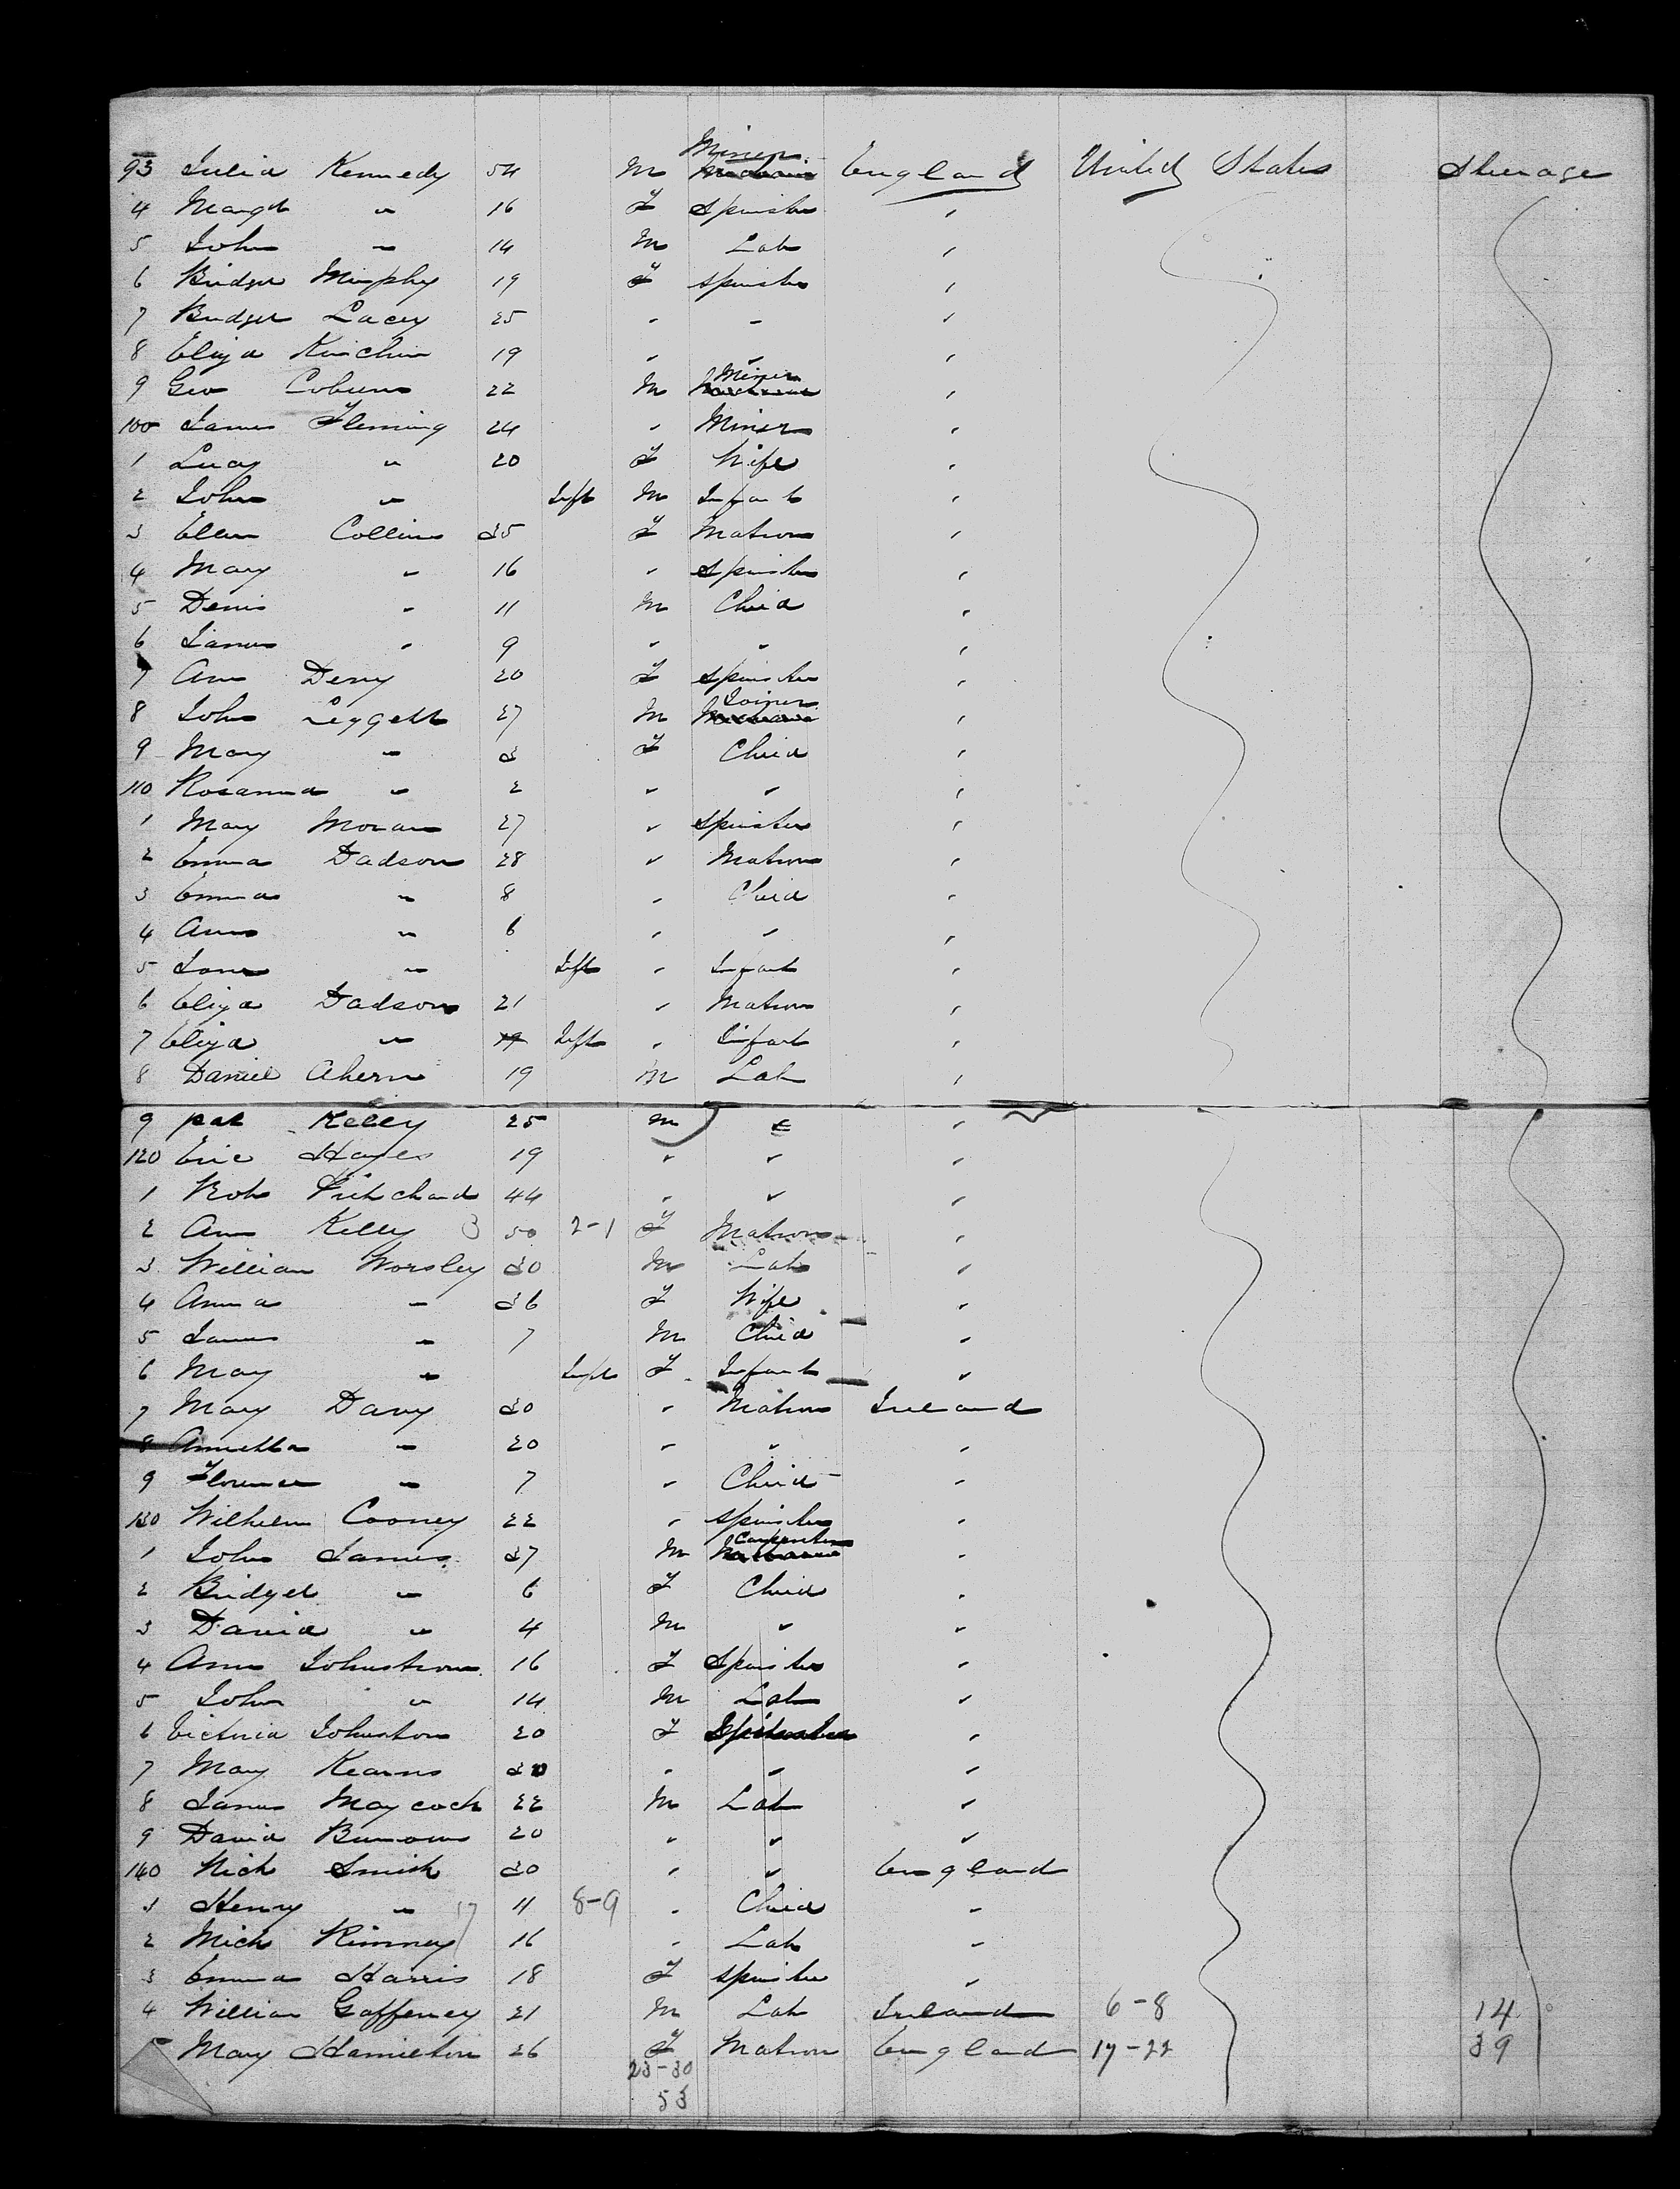 93 Julia Kennedy 54 M Miner England United States Steerage
4 Margt " 16 F Spinster "
5 John " 14 M Lab "
6 Bridget Murphy 19 F Spinster "
7 Bridget Lacey 25 " " "
8 Eliza 19 " " "
9 Geo Coburn 22 M Miner "
100 James Fleming 24 " Miner "
1 Lucy " 20 F Wife "
2 John " Inft M Infant "
3 Ellen Collins 35 F Matron "
4 Mary " 16 " Spinster "
5 Denis " 11 M Child "
6 James " 9 " " "
7 Ann Deny 20 F Spinster "
8 John Leggett 27 M Joiner "
9 Mary " 3 F Child "
110 Rosanna " 2 " " "
1 Mary Moran 27 " Spinster "
2 Emma Dadson 28 " Matron "
3 Emma " 8 " Child "
4 Ann " 6 " " "
5 Jane " Inft " Infant "
6 Eliza Dadson 21 " Matron "
7 Eliza " Inft " Infant "
8 Daniel Ahern 19 M Lab "
9 Pat Kelly 25 M " "
120 Hayes 19 " " "
1 Robt Pritchard 44 " " "
2 Ann Kelly 3 50 2-1 F Matron "
3 William Worsley 30 M Lab "
4 Anna " 36 F Wife "
5 James " 7 M Child "
6 Mary " Inft F Infant "
7 Mary Davy 30 " Matron Ireland
8 Annetta " 20 " " "
9 Florence " 7 " Child "
130 Wilhelm Cooney 22 " Spinster "
1 John James 37 M Carpenter "
2 Bridget " 6 F Child "
3 David " 4 M " "
4 Ann Johnstrom 16 F Spinster "
5 John " 14 M Lab "
6 Victoria Johnston 20 F Spinster "
7 Mary Kearns " " "
8 James Maycock 22 M Lab "
9 David Burrows 20 " " "
140 Nich Smith 30 " " England
1 Henry " 17 11 8-9 " Child "
2 Mich Kinney 16 " Lab "
3 Emma Harris 18 F Spinster "
4 William Gaffeney 21 M Lab Ireland 6-8 14
5 Mary Hamilton 26 F Matron England 17-22 39
23-30
53